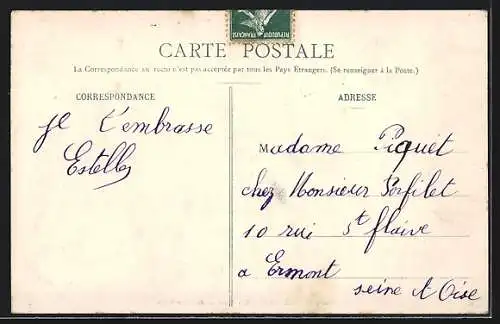 RÉPUBLIQUE FRANÇAISE
CARTE POSTALE
La Correspondance au recto n'est pas acceptée par tous les Pays Etrangers. (Se renseigner à la Poste.)
CORRESPONDANCE
je t'embrasse
Estelle
ADRESSE
Madame Piquet
chez Monsieur
10 rue St flaive
a Ermont
seine et Oise